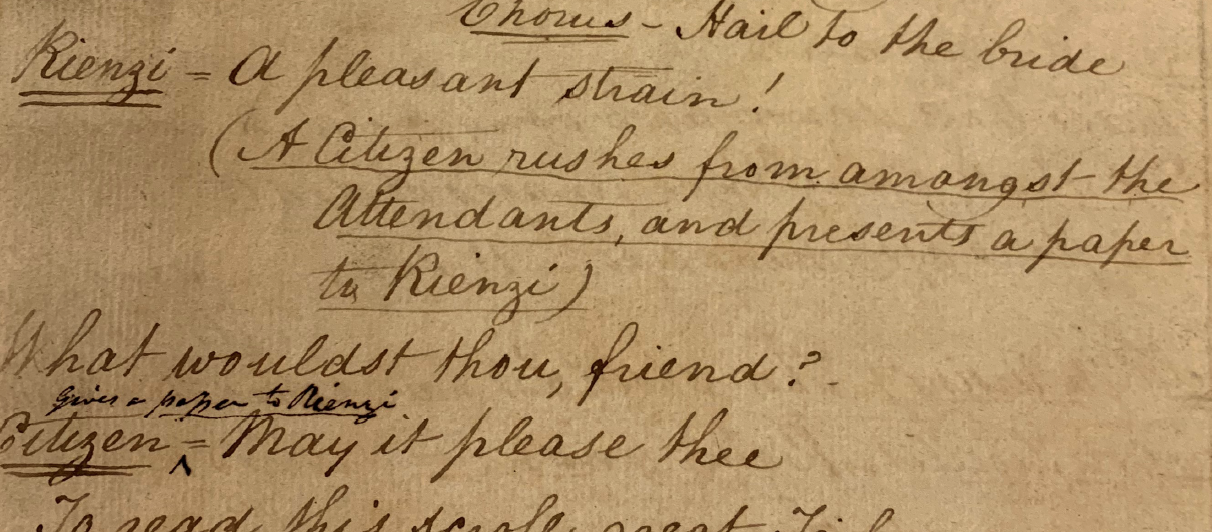 Chorus - Hail to the bride
Rienzi = A pleasant strain!
(A Citizen rushes from amongst the
Attendants, and presents a paper
to Rienzi)
What wouldst thou, friend?
Gives a paper to Rienzi
Citizen = ^ May it please thee
To read this scroll, great